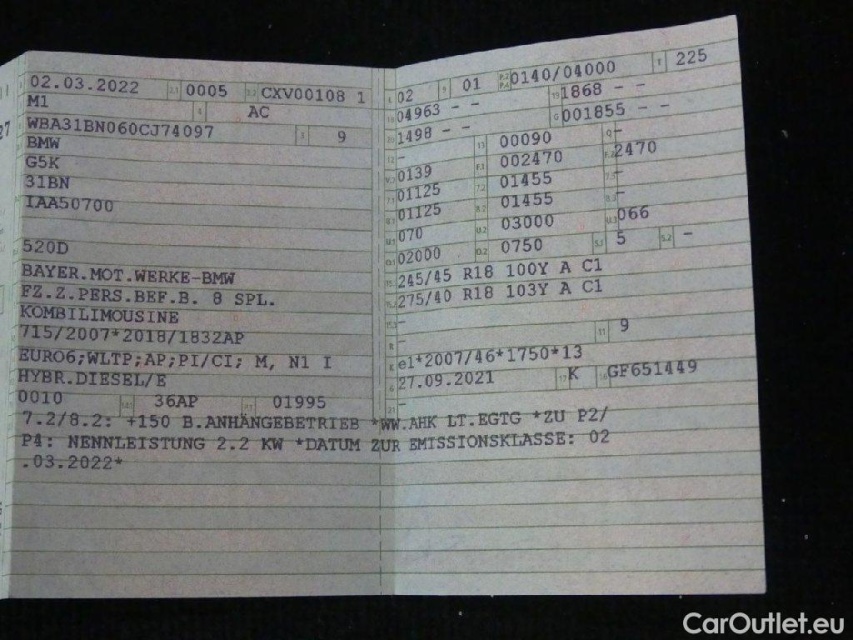 02.03.2022 0005 CXV00108 1
M1 AC
WBA31BN060CJ74097 9
BMW
G5K
31BN
IAA50700
520D
BAYER.MOT.WERKE-BMW
FZ.Z.PERS.BEF.B. 8 SPL.
KOMBILIMOUSINE
715/2007*2018/1832AP
EURO6;WLTP;AP;PI/CI; M, N1 I
HYBR.DIESEL/E
0010 36AP 01995
02 01 0140/04000 225
04963 - - 1868 - -
1498 - - 001855 - -
- 00090 -
0139 002470 2470
01125 01455 -
01125 01455 -
070 03000 066
02000 0750 5 -
245/45 R18 100Y A C1
275/40 R18 103Y A C1
-
- 9
-
e1*2007/46*1750*13
27.09.2021 K GF651449
-
7.2/8.2: +150 B.ANHÄNGEBETRIEB *WW.AHK LT.EGTG *ZU P2/
P4: NENNLEISTUNG 2.2 KW *DATUM ZUR EMISSIONSKLASSE: 02
.03.2022*
CarOutlet.eu